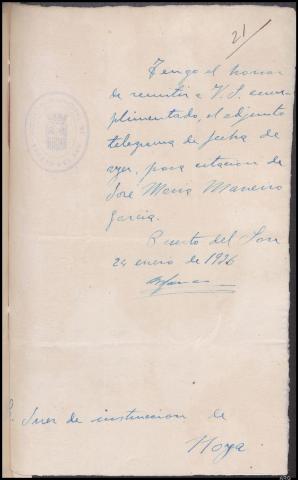 21
Tengo el honor
de remitir a V. S. cum-
plimentado, el adjunto
telegrama de fecha de
ayer, para citacion de
José Maria Maneiro
Garcia.
Puerto del Son
24 enero de 1926
Sr. Juez de instruccion de
Noya